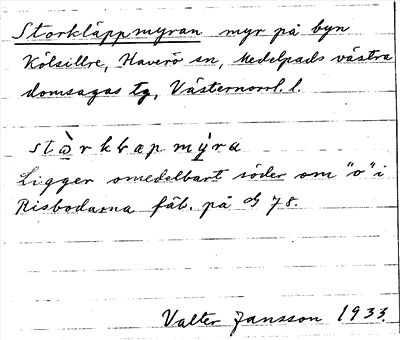 Storkläppmyran myr på byn
Kölsillre, Haverö sn, Medelpads västra
domsagas tg, Västernorrl. l.
Ligger omedelbart söder om "o" i
Risbodarna fäb. på 78.
Valter Jansson 1933.